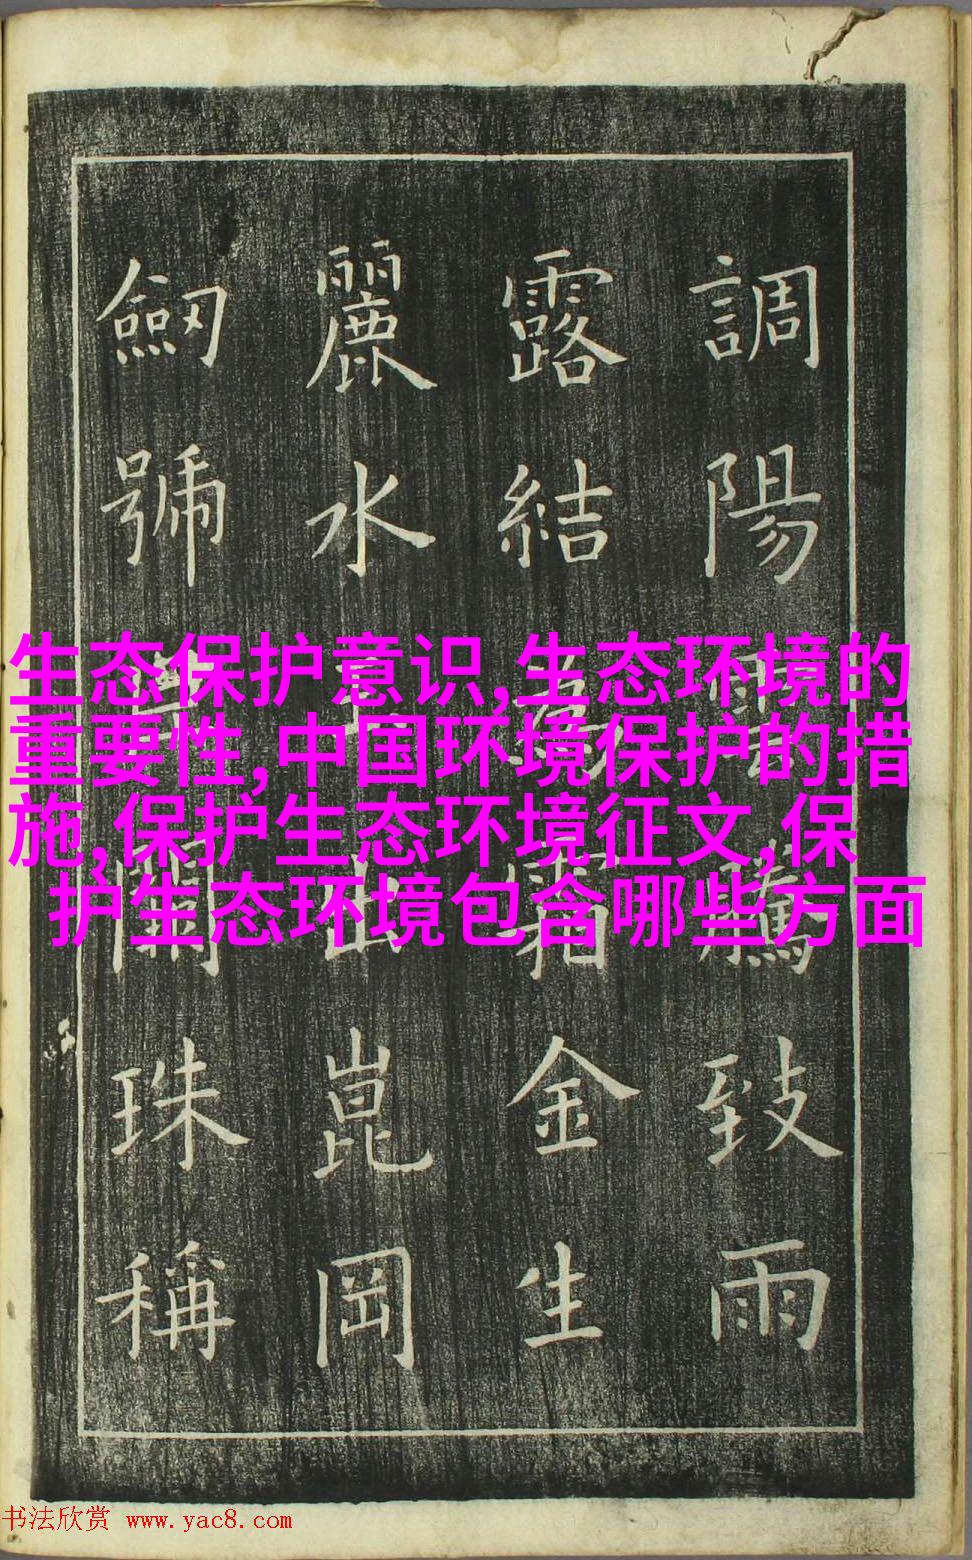 調陽騰致雨
露結為霜金生
麗水出崑岡
劒號闕珠稱
生态保护意识,生态环境的
重要性,中国环境保护的措
施,保护生态环境征文,保
护生态环境包含哪些方面
书法欣赏 www.yac8.com